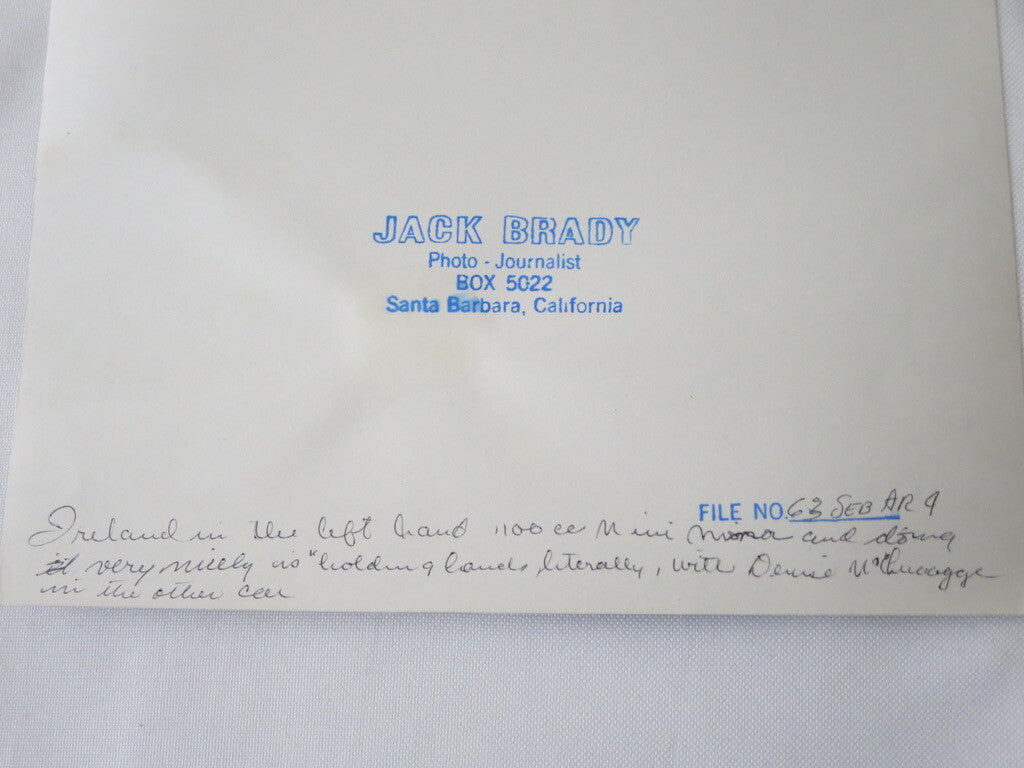 JACK BRADY
Photo - Journalist
BOX 5022
Santa Barbara, California
FILE NO. 63 SEB AR 9
Ireland in the left hand 1100 cc Mini and doing
it very nicely is "holding hands, literally, with Denise McCluggage
in the other car